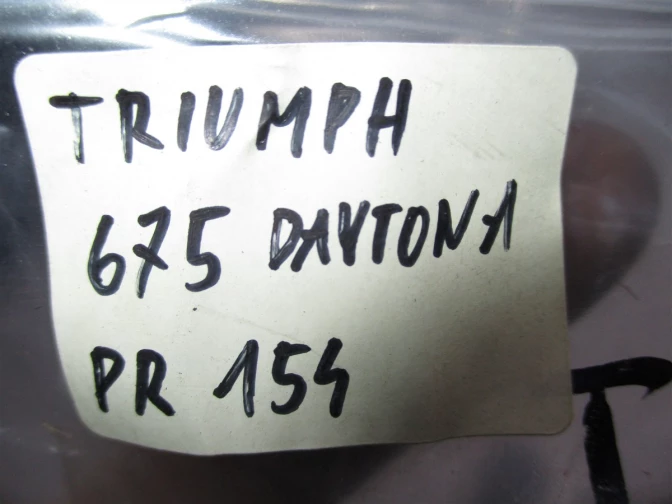 TRIUMPH
675 DAYTONA
PR 154